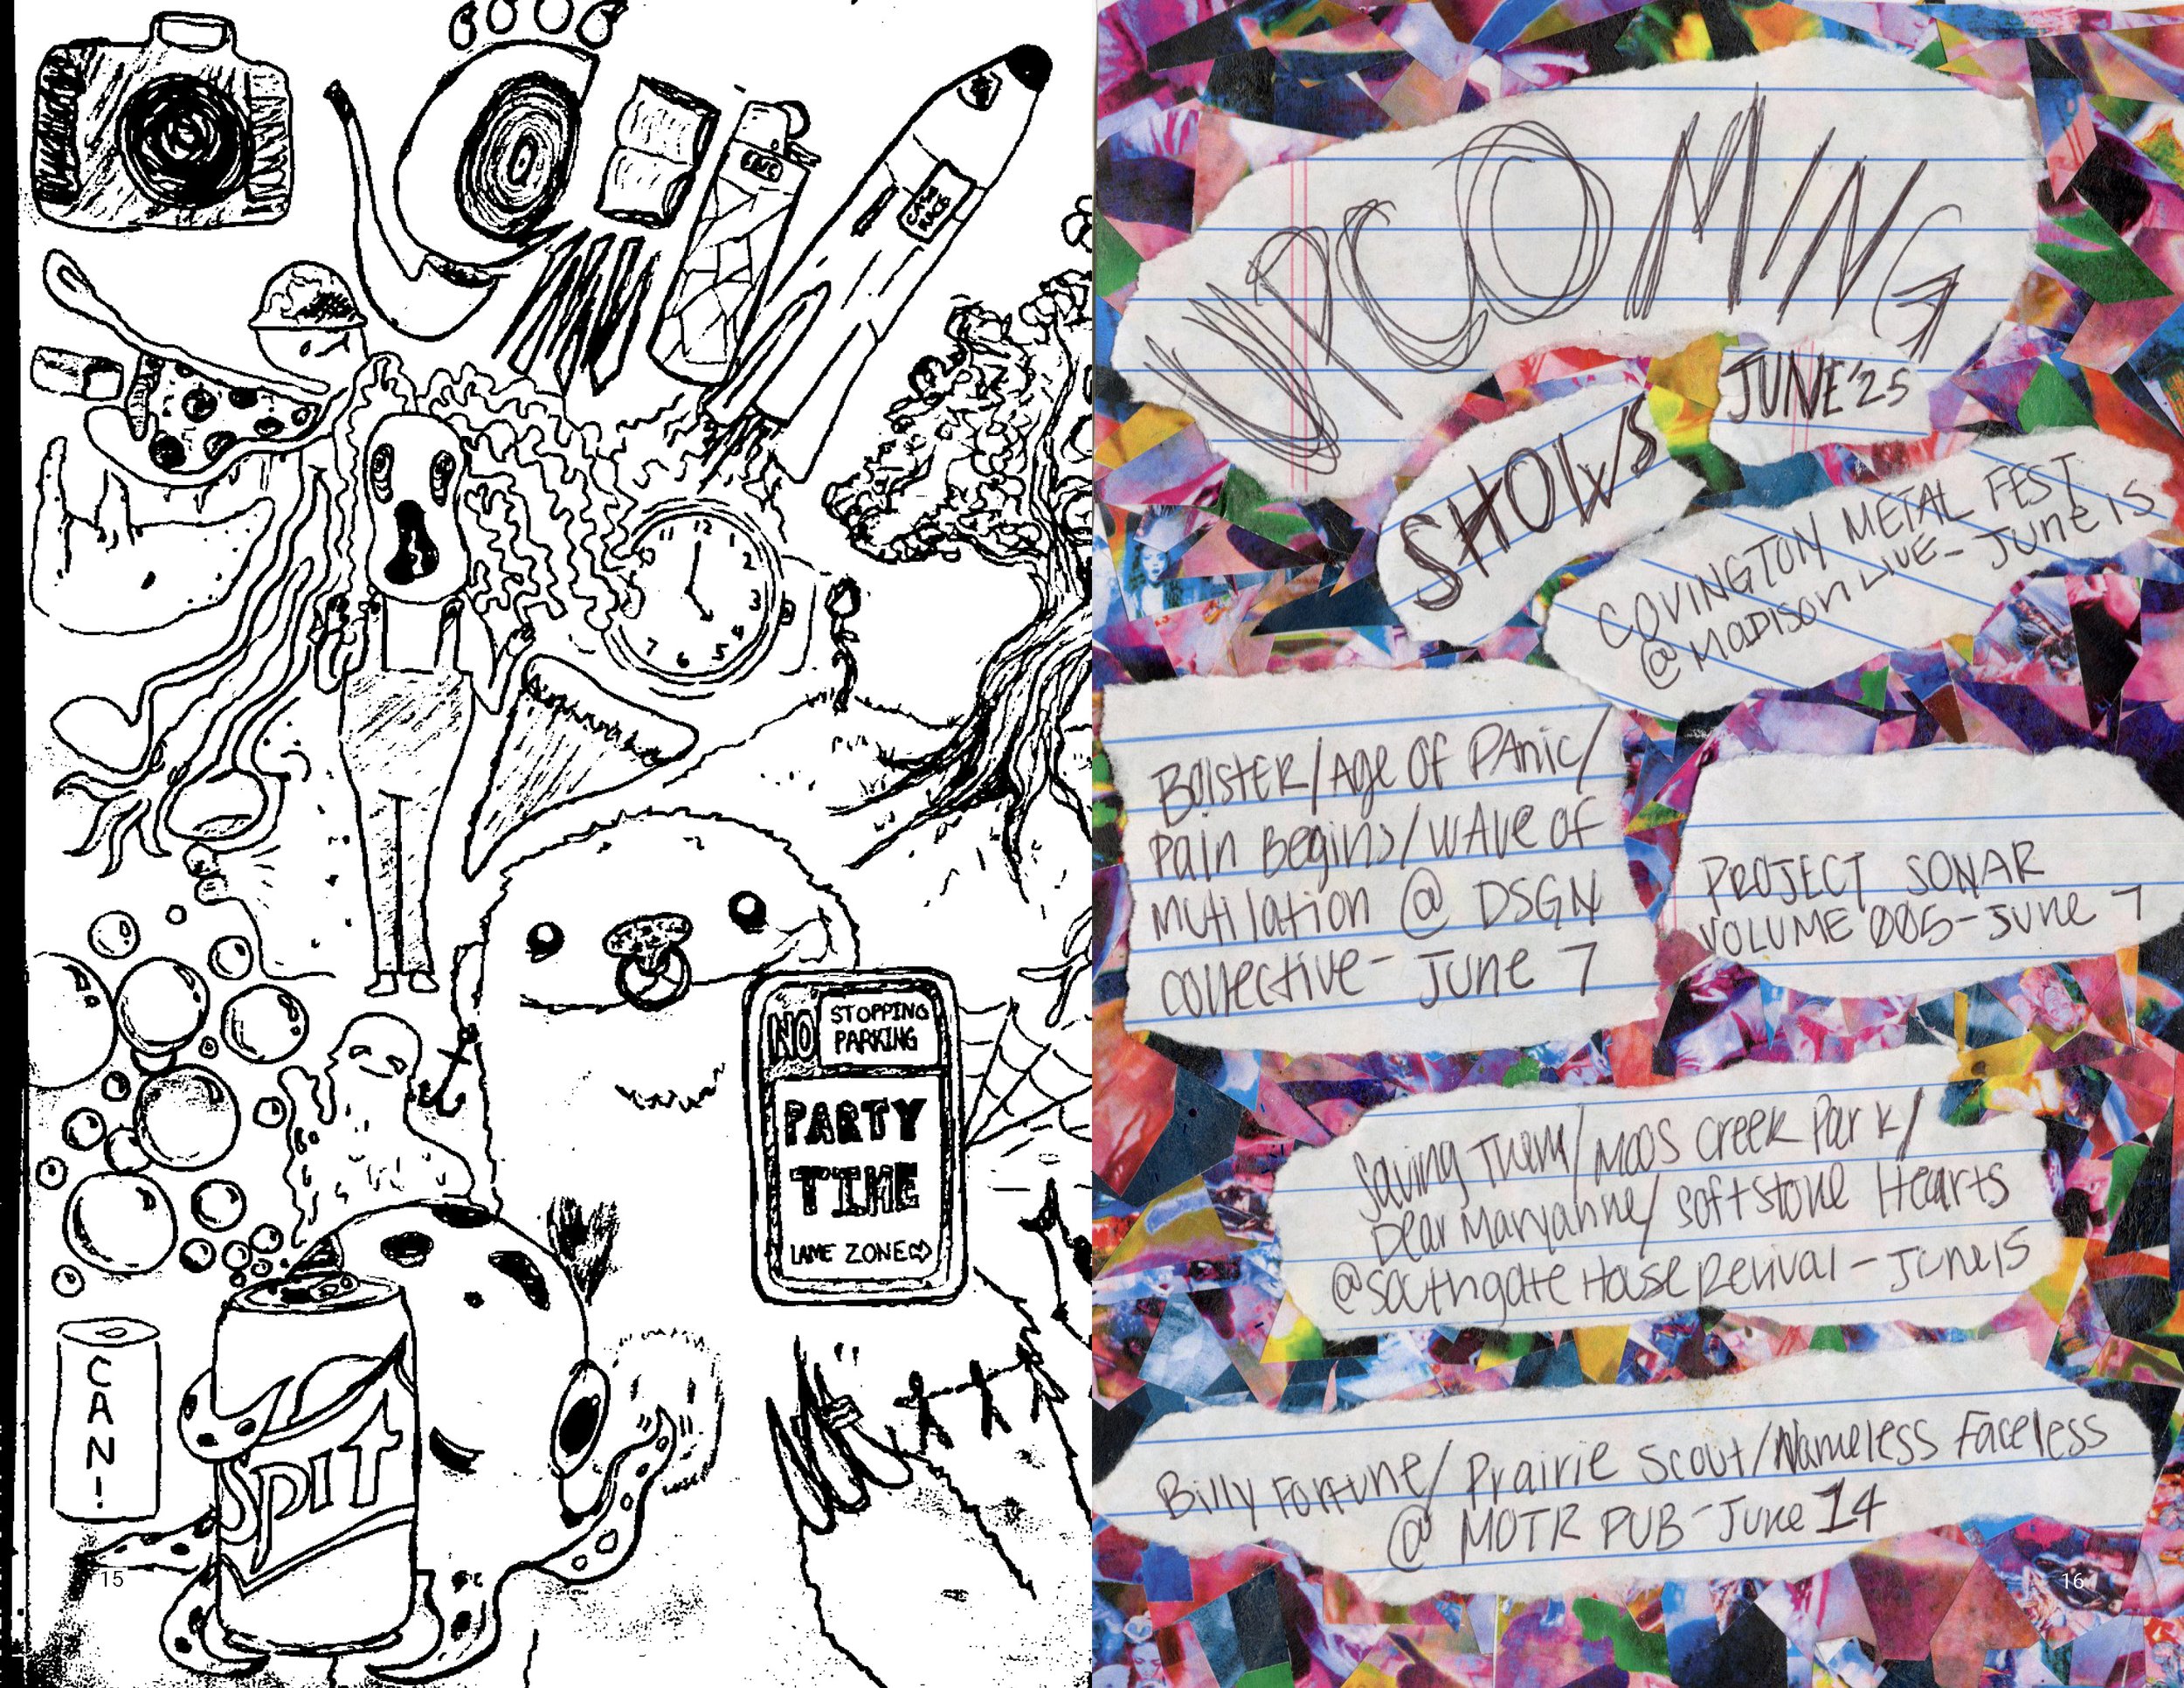 12
11
1
2
3
4
5
6
7
NO
STOPPING
PARKING
PARTY
TIME
LAME ZONE
C
A
N
!
Spit
15
UPCOMING
SHOWS
JUNE '25
COVINGTON METAL FEST
@ MADISON LIVE - JUNE 15
BOISTER/AGE OF PANIC/
PAIN BEGINS/WAVE OF
MUTILATION @ DSGN
COLLECTIVE - JUNE 7
PROJECT SONAR
VOLUME 005 - JUNE 7
Saving Them/Moos Creek Park/
Dear Maryanne/Softstone Hearts
@Southgate House Revival - June 15
Billy Fortune/Prairie Scout/Nameless Faceless
@ MOTR PUB - June 14
16